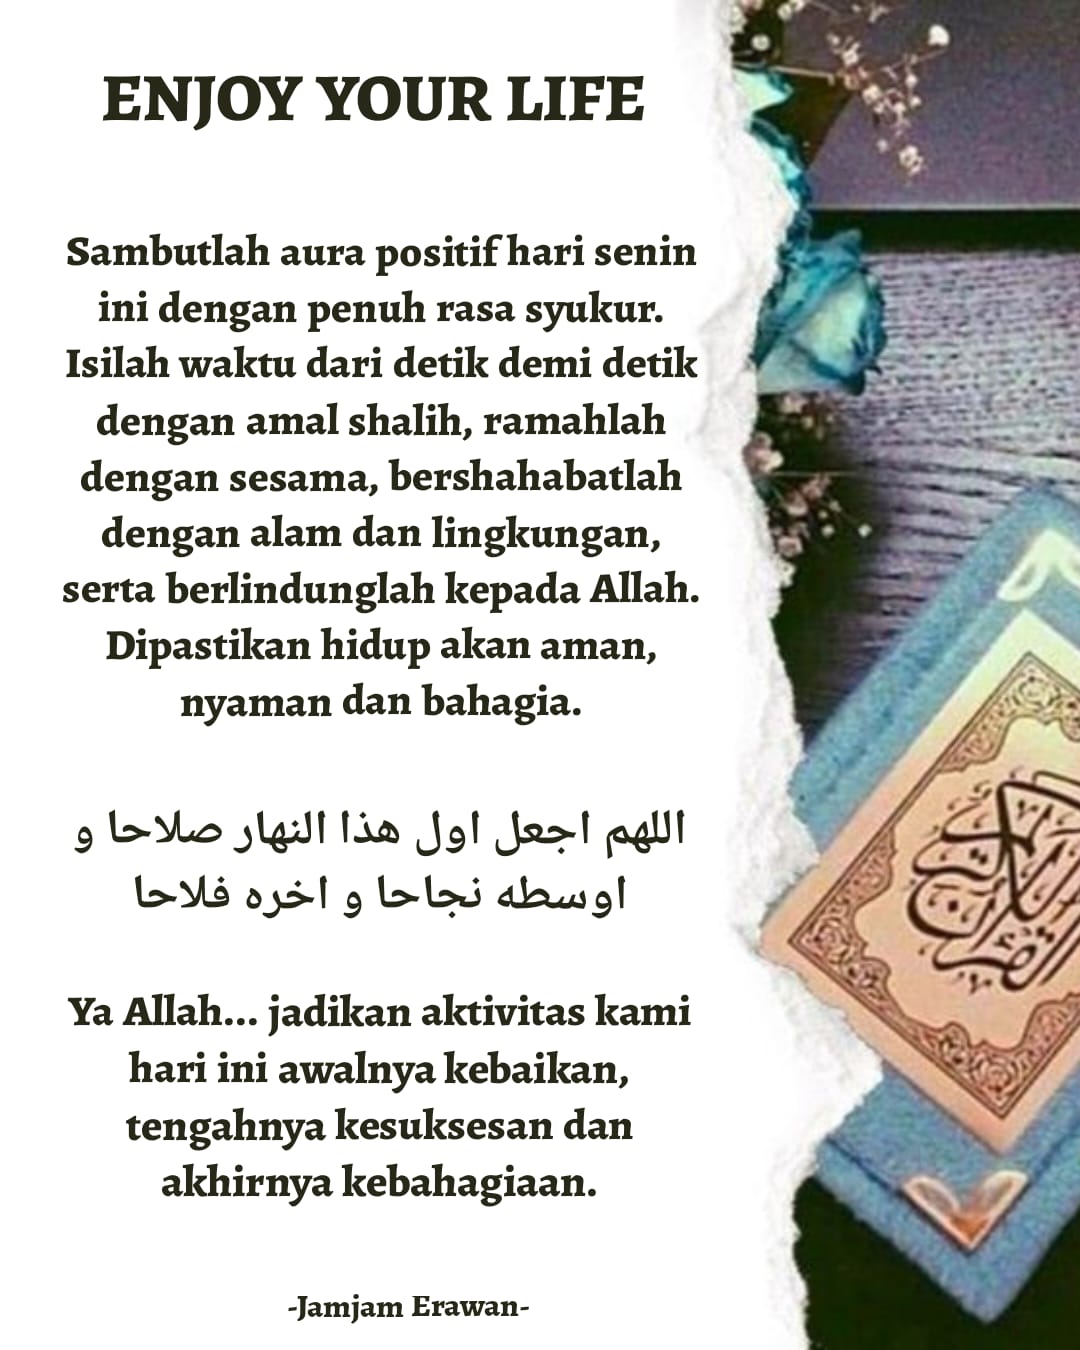 ENJOY YOUR LIFE
Sambutlah aura positif hari senin
ini dengan penuh rasa syukur.
Isilah waktu dari detik demi detik
dengan amal shalih, ramahlah
dengan sesama, bershahabatlah
dengan alam dan lingkungan,
serta berlindunglah kepada Allah.
Dipastikan hidup akan aman,
nyaman dan bahagia.
اللهم اجعل اول هذا النهار صلاحا و
اوسطه نجاحا و اخره فلاحا
Ya Allah... jadikan aktivitas kami
hari ini awalnya kebaikan,
tengahnya kesuksesan dan
akhirnya kebahagiaan.
-Jamjam Erawan-
القرآن الكريم